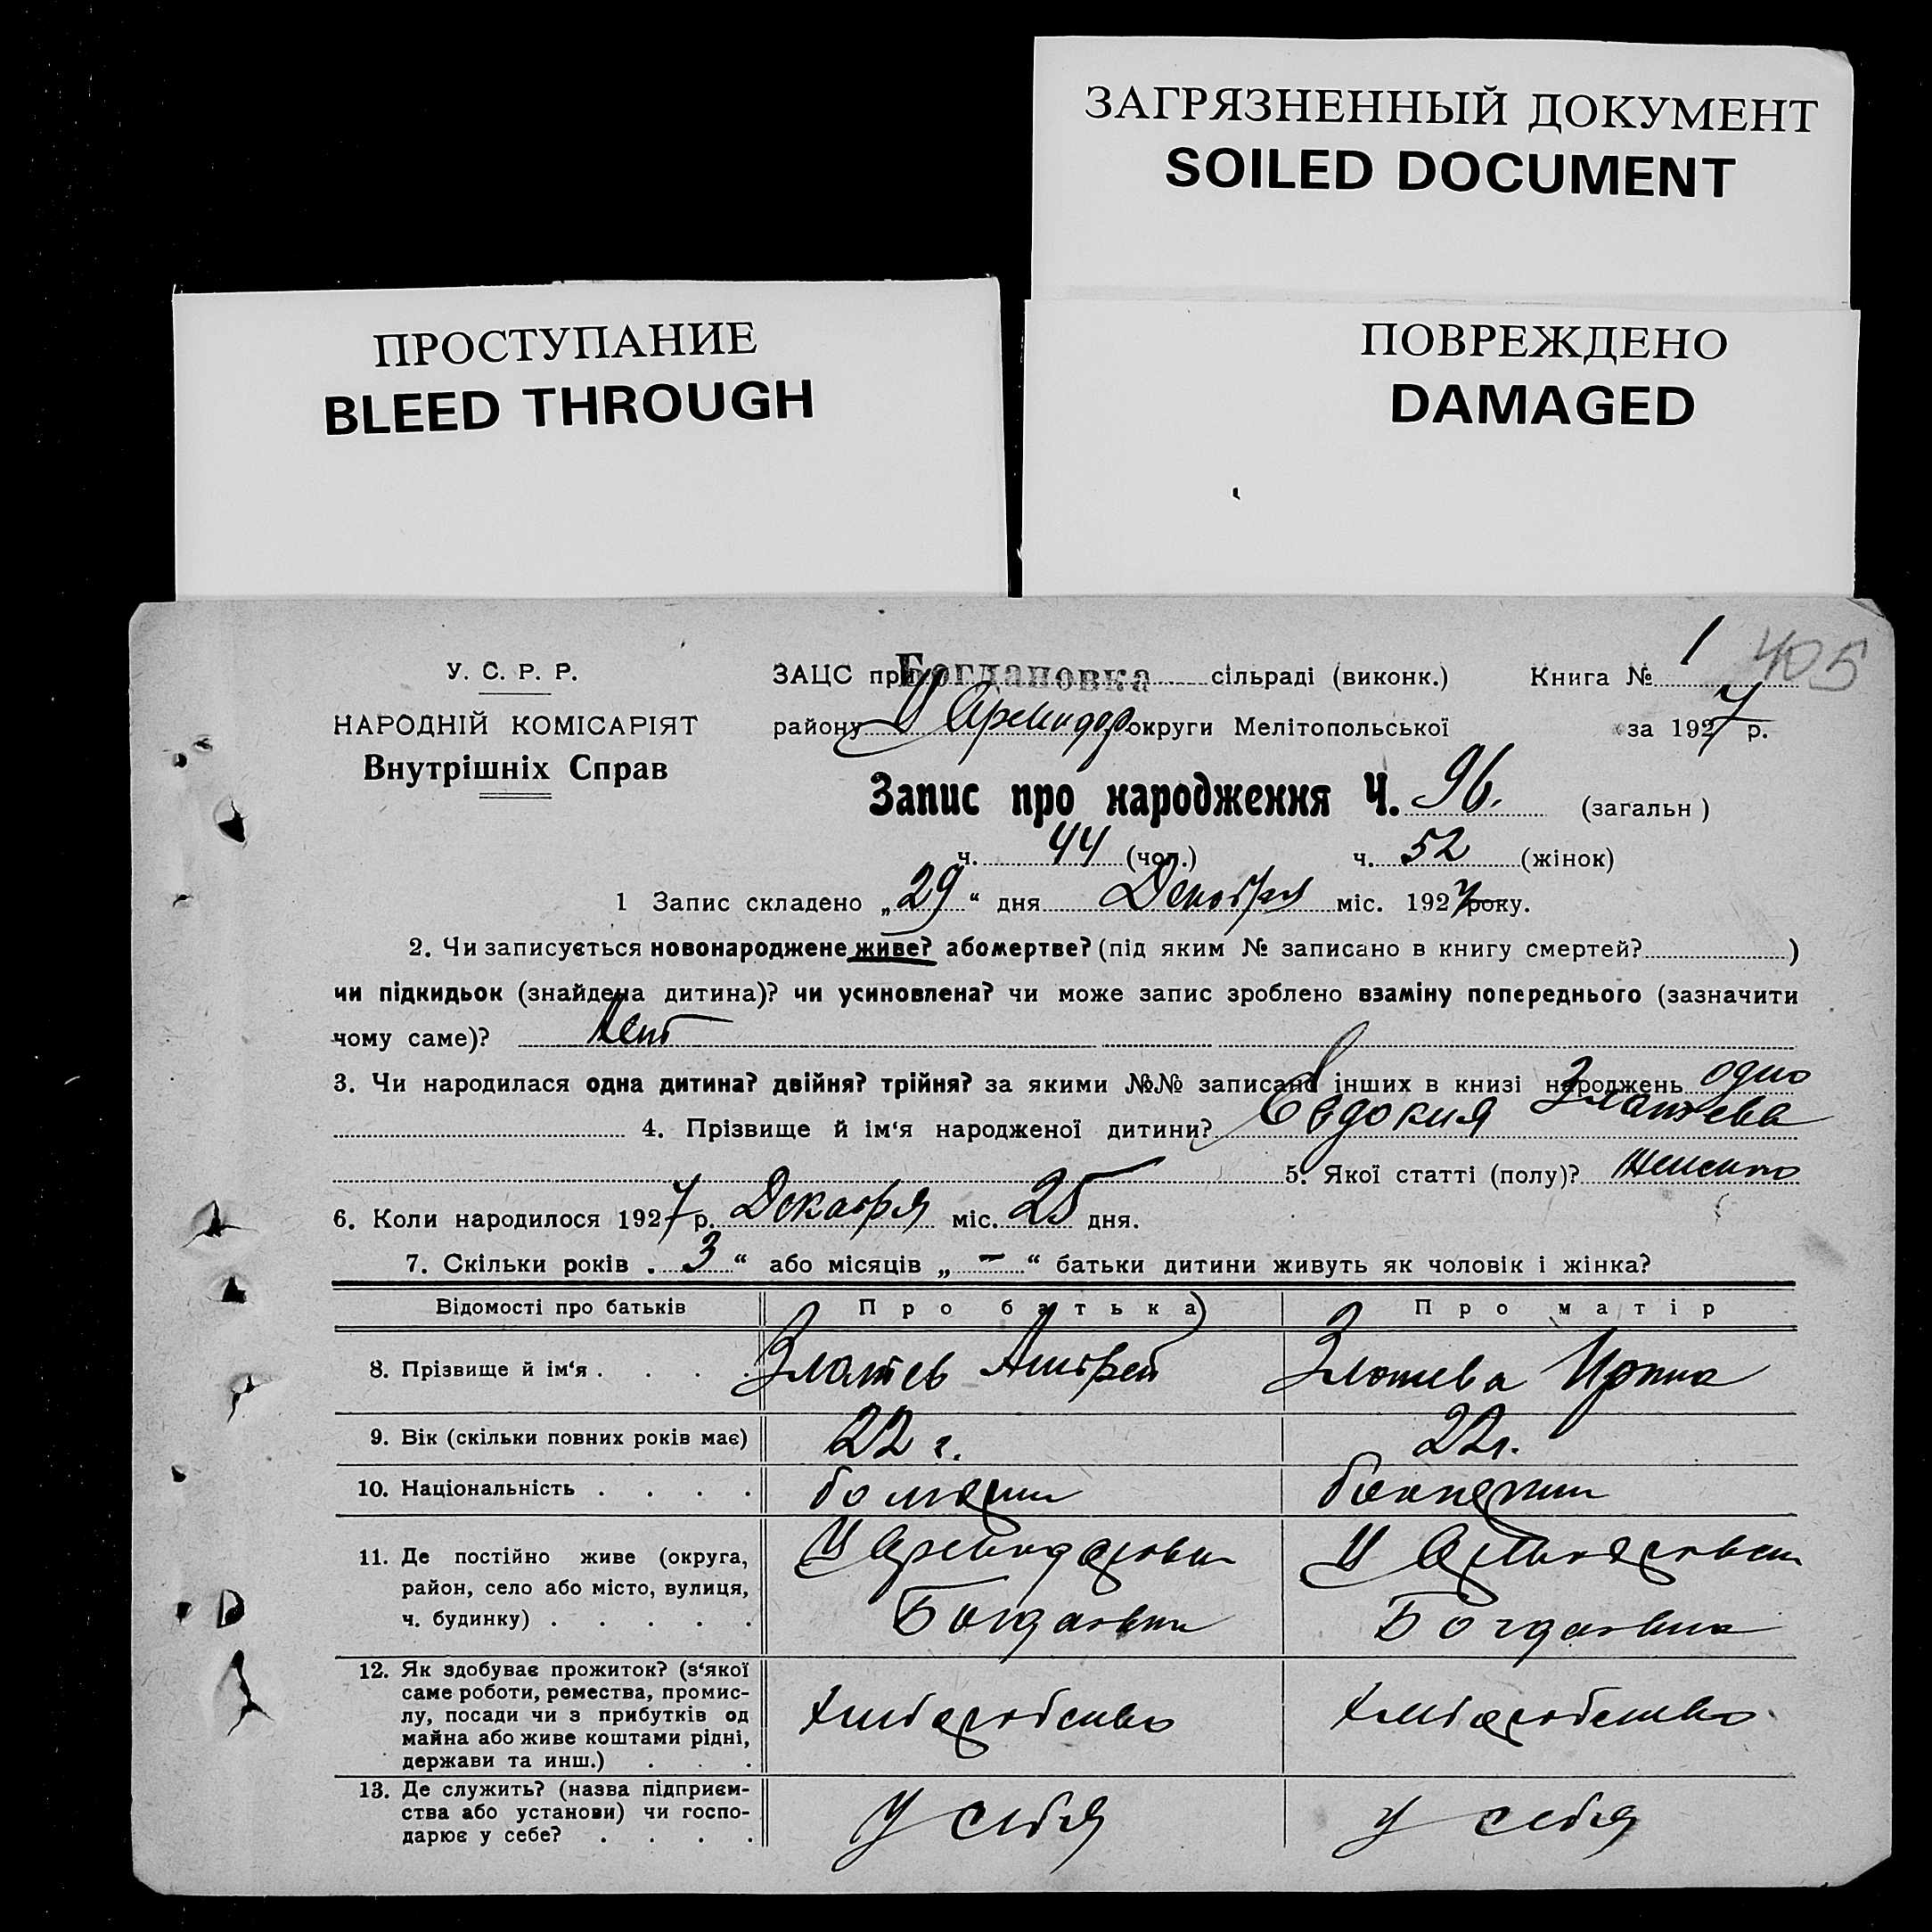 ЗАГРЯЗНЕННЫЙ ДОКУМЕНТ
SOILED DOCUMENT
ПРОСТУПАНИЕ
BLEED THROUGH
ПОВРЕЖДЕНО
DAMAGED
У. С. Р. Р.
НАРОДНІЙ КОМІСАРІЯТ
Внутрішніх Справ
ЗАЦС при Богдановка сільраді (виконк.) Книга № 1 405
району округи Мелітопольської за 1927 р.
Запис про народження Ч. 96. (загальн)
ч. 44 (чол.) ч. 52 (жінок)
1 Запис складено „29“ дня Декабря міс. 1927 року.
2. Чи записується новонароджене живе? або мертве? (під яким № записано в книгу смертей? )
чи підкидьок (знайдена дитина)? чи усиновлена? чи може запис зроблено взаміну попереднього (зазначити
чому саме)? Нет
3. Чи народилася одна дитина? двійня? трійня? за якими №№ записано інших в книзі народжень одно
4. Прізвище й ім‘я народженої дитини? Евдокия Златева
5. Якої статті (полу)? женско
6. Коли народилося 1927 р. Декабря міс. 25 дня.
7. Скільки років „ 3 “ або місяців „ — “ батьки дитини живуть як чоловік і жінка?
Відомості про батьків Про батька Про матір
8. Прізвище й ім‘я . . . . Златев Андрей Златева Ирина
9. Вік (скільки повних років має) 22 г. 22 г.
10. Національність . . . .
11. Де постійно живе (округа,
район, село або місто, вулиця,
ч. будинку) . . . . . Богдановка Богдановка
12. Як здобуває прожиток? (з‘якої
саме роботи, ремества, промис-
лу, посади чи з прибутків од
майна або живе коштами рідні,
держави та инш.) . . .
13. Де служить? (назва підприєм-
ства або установи) чи госпо-
дарює у себе? . . . . У себя У себя